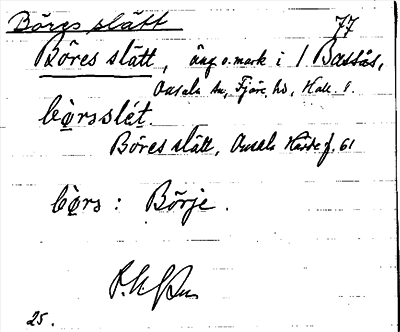 Böres slätt 77
Böres slätt, äng o. mark i 1 Bassås,
Onsala sn, Fjäre hd, Hall. l.
börsslét.
Böres slätt, Onsala Härdef. 61
börs: Börje.
25.